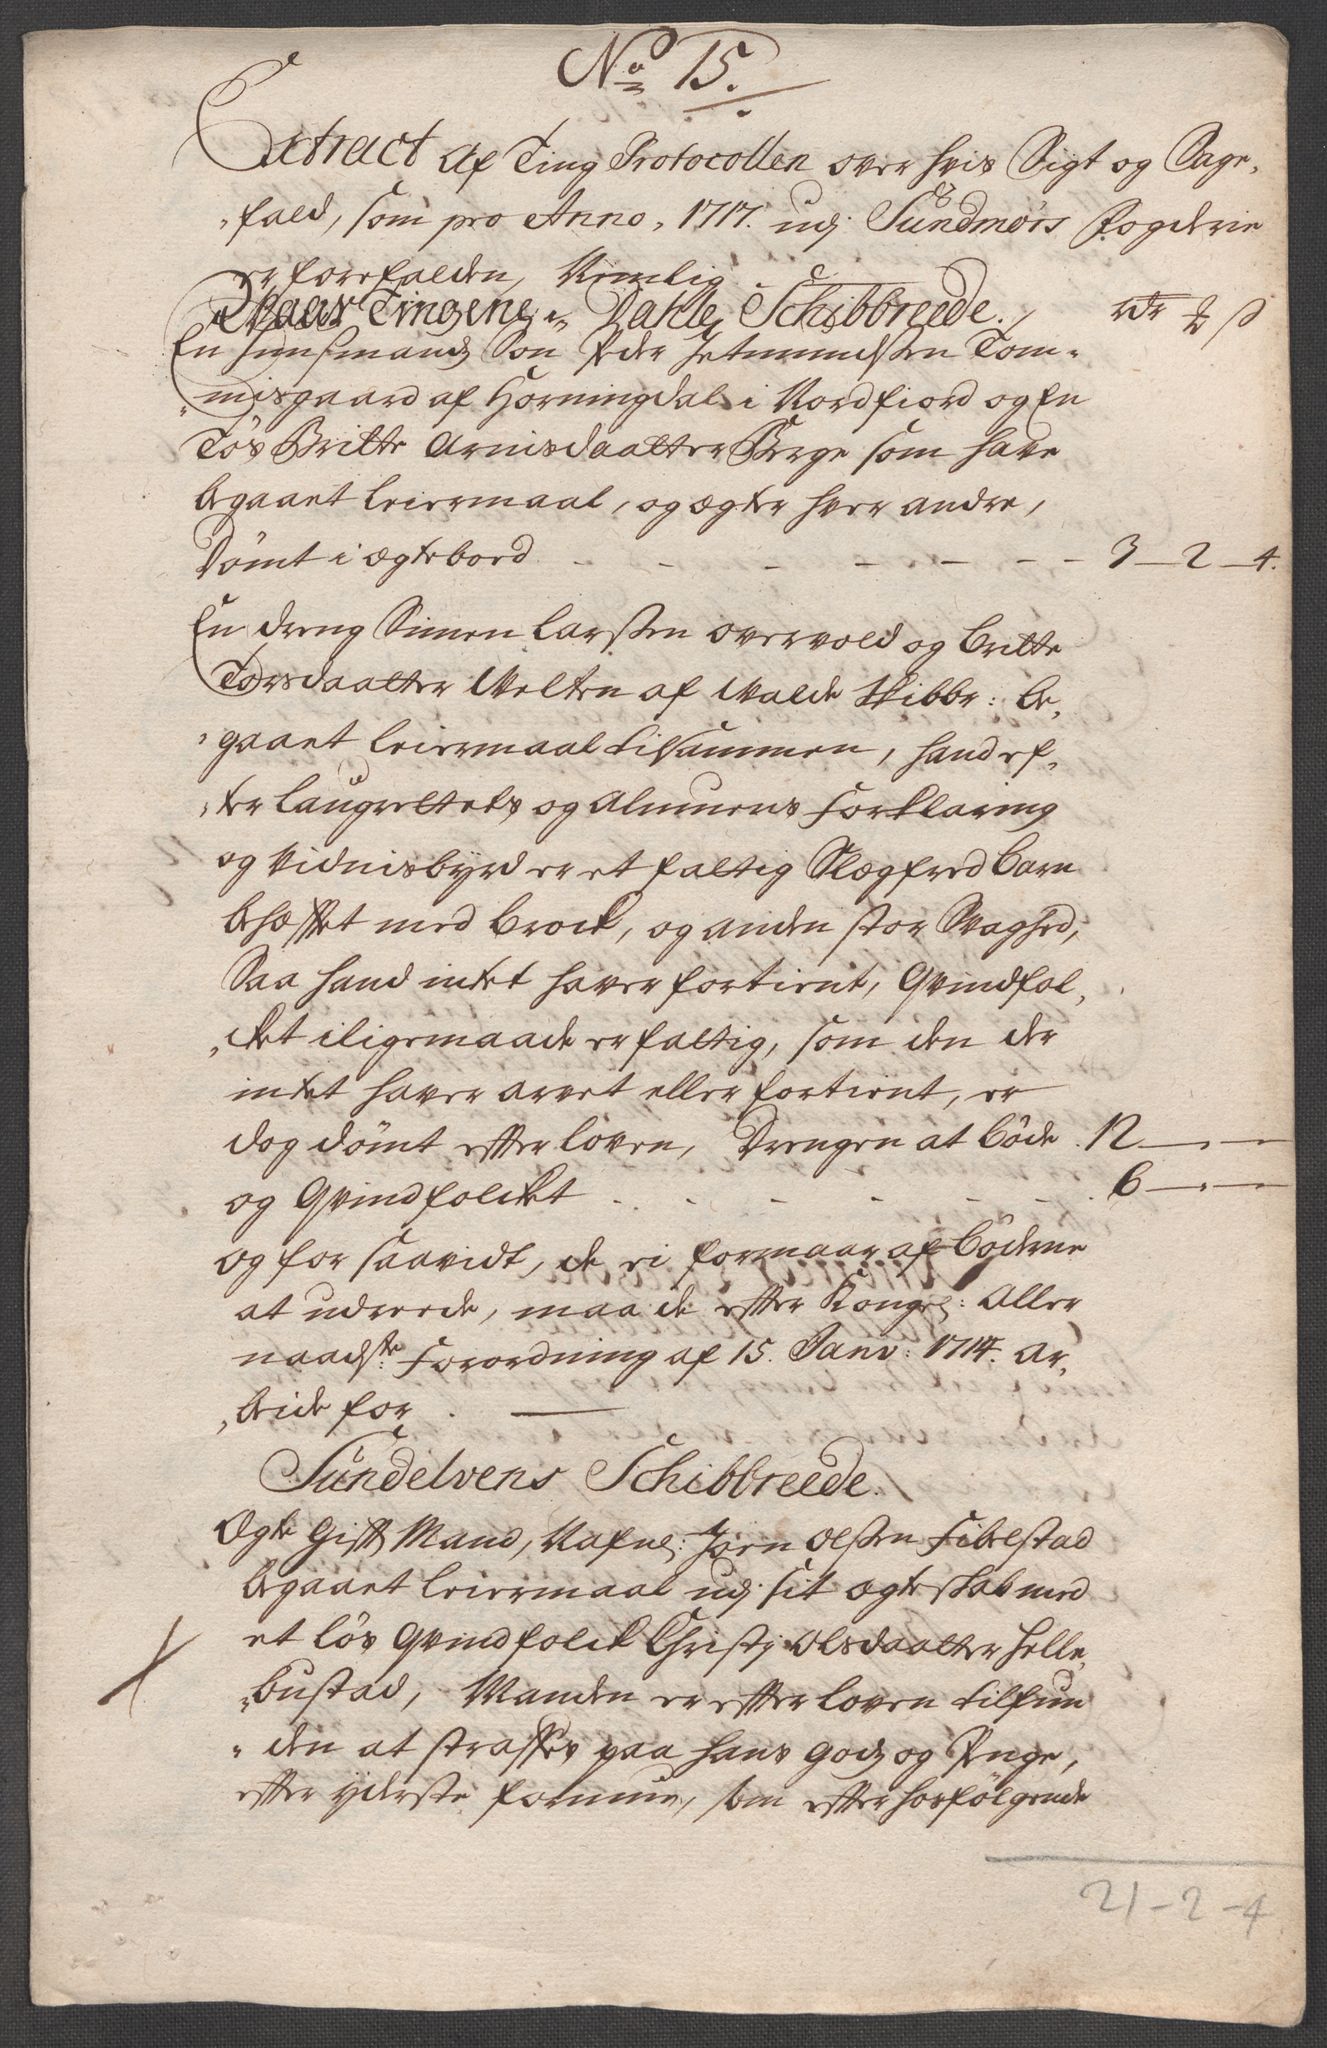 No 15.
Extract Af Ting Protocollen over hvis Sigt og Sage,
„fald, som pro Anno, 1717. udj Sundmørs Fogderie
er forefalden, Nemlig
Waar Tingene, Dahle Schibbreede. rdr ß
En huusmands Søn Peder Jetmundssen Tom„
„misgaard af Horningdal i Nordfiord og En
Tøs Britte Arnisdaatter Berge som have
begaaet leiermaal, og ægter hver andre,
Dømt i ægtebod - - - - - - - 3 - 2 - 4.
En dreng Simen Larssen overvold og britte
Torsdaatter Welten af Walde Skibbr: be,
„gaaet leiermaal tilsammen, hand ef„
„ter laugrettets og Almuens Forklaring
og Vidnisbyrd er et fattig Slegfred barn
behæfftet med brock, og anden stor Svaghed,
Saa hand intet haver fortient, Qvindfol„
„cket iligemaade er fattig, som den der
intet haver arvet eller fortient, er
dog dømt efter loven, Drengen at bøde 12 - -
og Qvindfolcket - - - - - 6 - -
og for saavidt, de ei formaar af bøderne
at udreede, maa de effter Kongl: Aller
naadste: Forordning af 15. Janv: 1714. ar„
„beide for
Sundelvens Schibbreede.
Ægte Gifft Mand, Nafnl: Jøen Olssen Fibelstad
begaaet leiermaal udj sit ægteskab med
et løs Qvindfolck Christj Olsdaatter Helle„
„bustad, Manden er effter loven tilfun
„den at straffes paa hans gods og Penge,
effter yderste formue, som effter hosfølgende
21 - 2 - 4